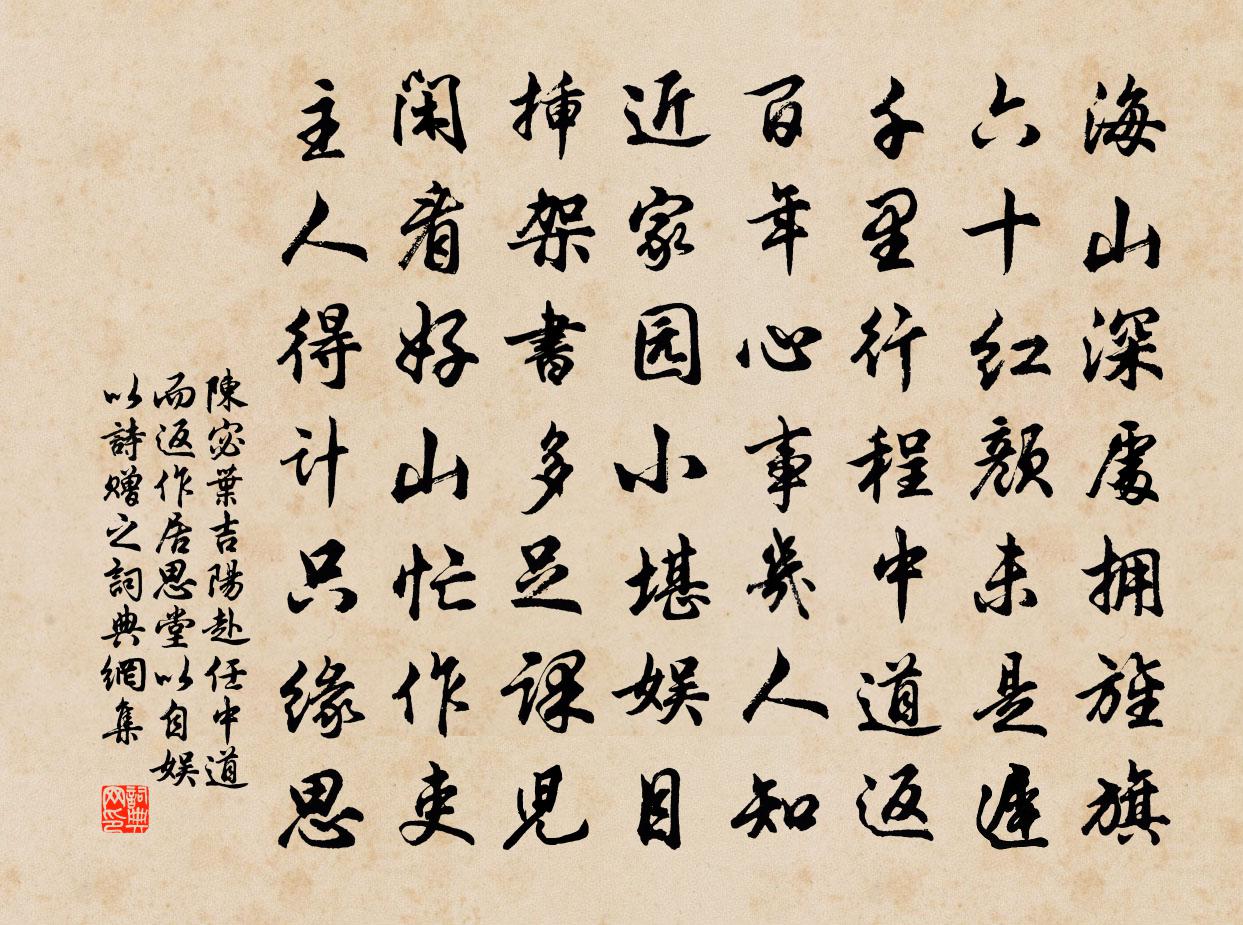 海山深處拥旌旗
六十红颜未是遲
千里行程中道返
百年心事幾人知
近家园小堪娱目
挿架書多足課児
閑看好山忙作吏
主人得计只缘思
陳宓葉吉陽赴任中道
而返作居思堂以自娱
以詩赠之詞典網集
詞典
网印